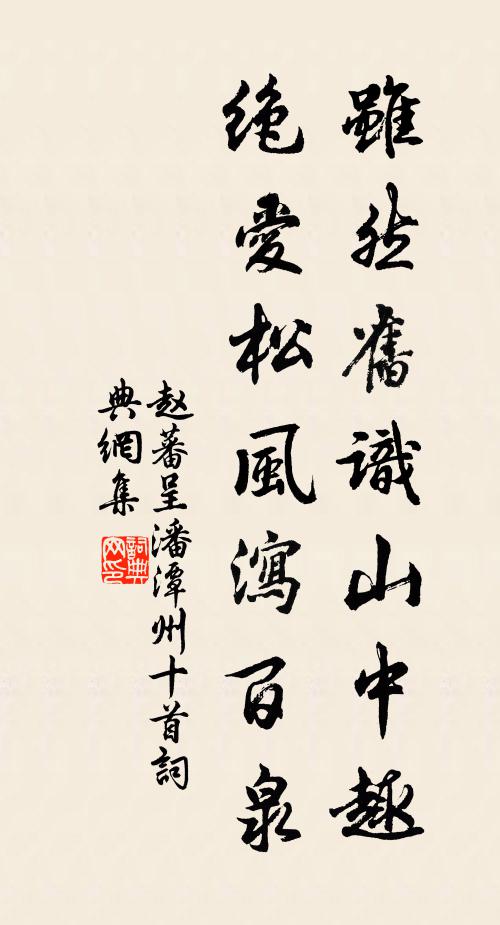 雖然舊識山中趣
絶愛松風瀉百泉
赵蕃呈潘潭州十首詞
典網集
詞典網印